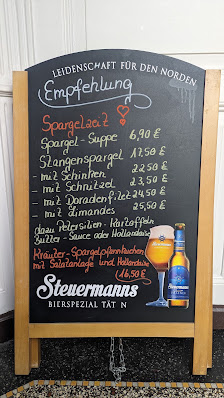 LEIDENSCHAFT FÜR DEN NORDEN
Empfehlung
Spargelzeit
Spargel - Suppe 6,90 €
Stangenspargel 17,50 €
- mit Schinken 22,50 €
- mit Schnitzel 23,50 €
- mit Doradenfilet 24,50 €
- mit Limandes 25,50 €
dazu Petersilien - Kartoffeln
Butter - Sauce oder Hollandaise
Kräuter - Spargelpfannkuchen
mit Salatanlage und Hollandaise
(16,50 €
Steuermanns
BIERSPEZIALITÄTEN